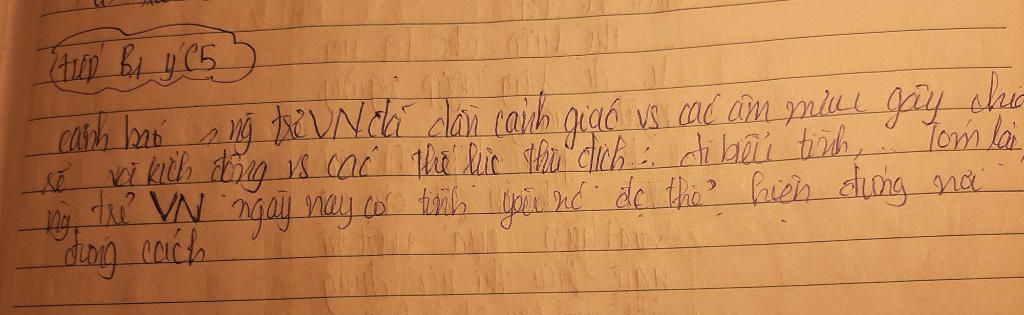 tiếp B1 ý C5
cảnh báo, ng trẻ VN đã dần cảnh giác vs các âm mưu gây chia
rẽ và kích động vs các thế lực thù địch: đi biểu tình,... Tóm lại,
ng trẻ VN ngày nay có tình yêu nc đc thể hiện đúng nơi
đúng cách